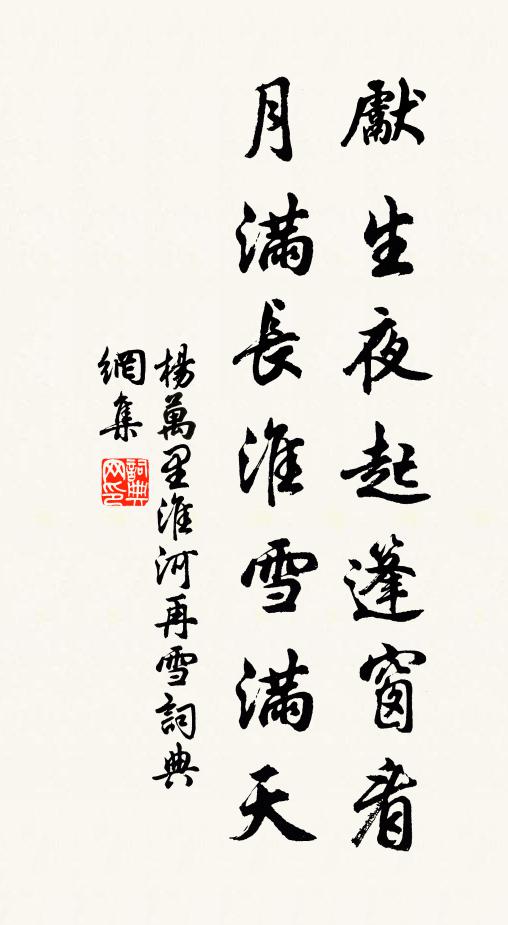 獻生夜起蓬窗看
月滿長淮雪滿天
楊萬里淮河再雪詞典
網集
詞典
网印